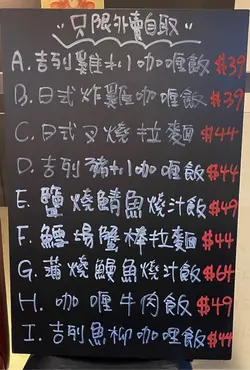 只限外賣自取
A. 吉列雞扒咖喱飯 $39
B. 日式炸雞咖喱飯 $39
C. 日式叉燒拉麵 $44
D. 吉列豬扒咖喱飯 $44
E. 鹽燒鯖魚燒汁飯 $49
F. 鱷場蟹棒拉麵 $44
G. 蒲燒鰻魚燒汁飯 $64
H. 咖喱牛肉飯 $49
I. 吉列魚柳咖喱飯 $44